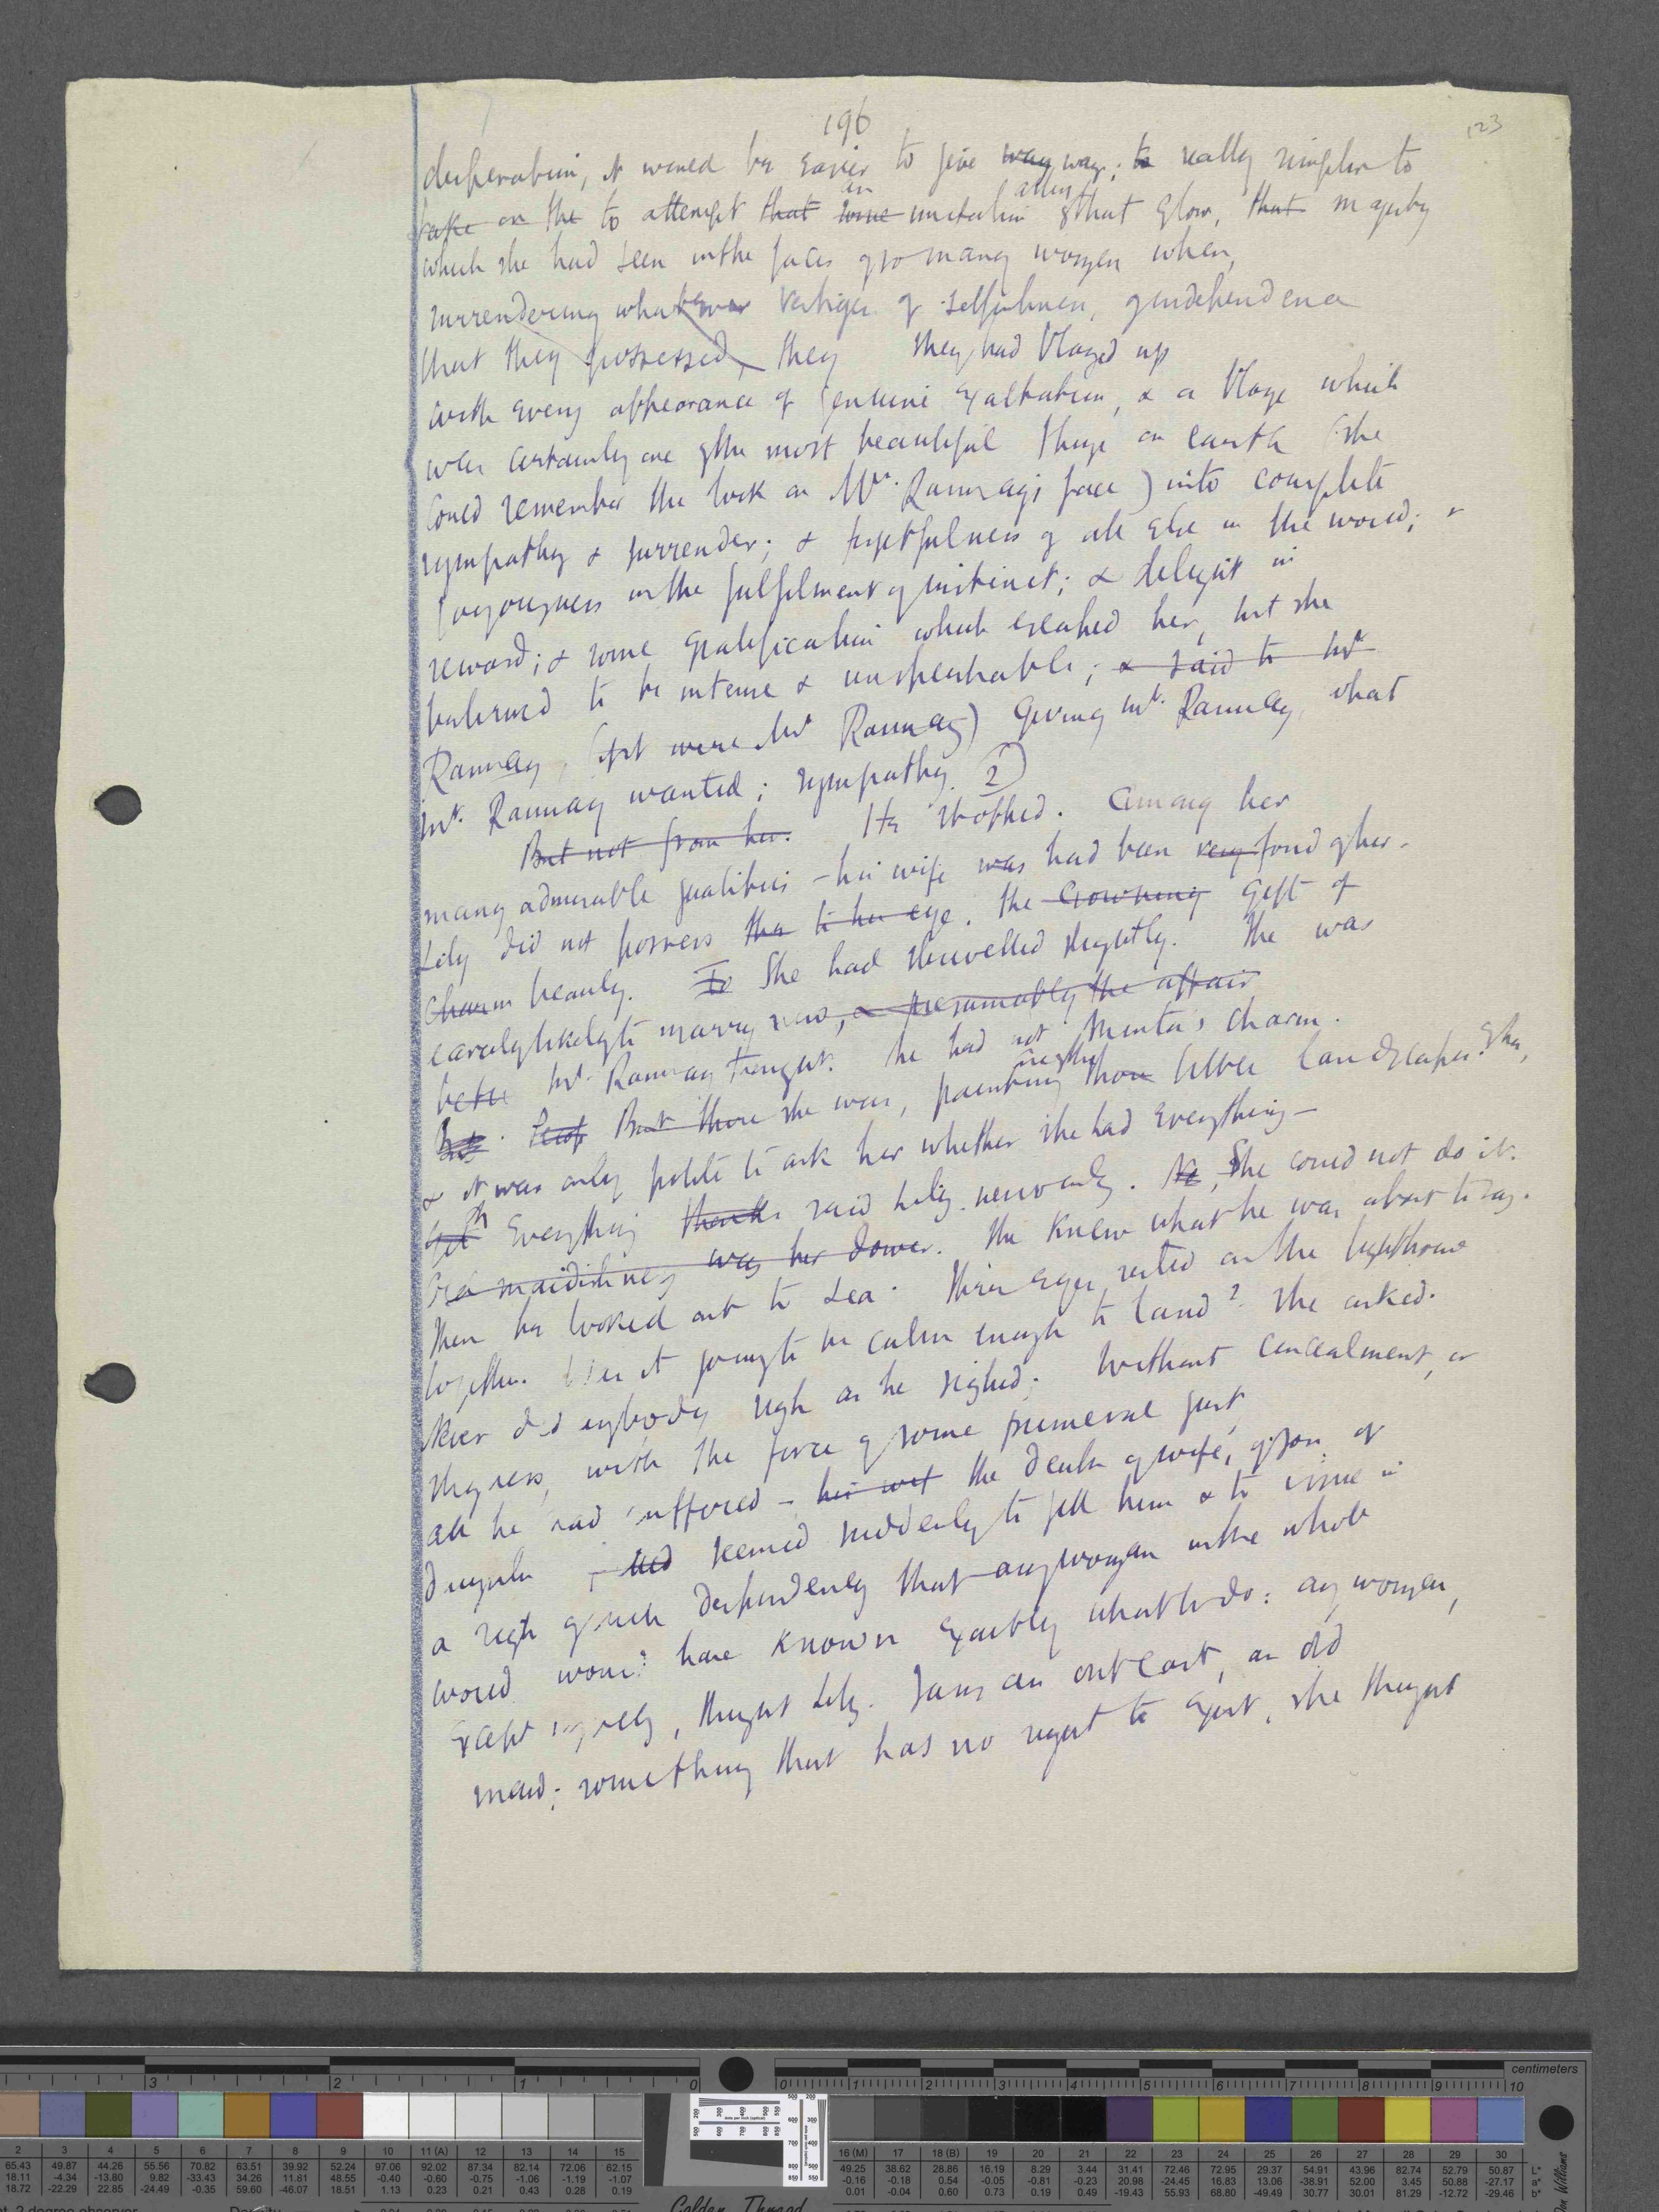 196
123
desperation, it would be easier to give way way; to really simpler to
an all my
take on the to attempt that some imitation of that glow, that rhapsody
which she had seen in the faces of so many women when,
surrendering whatever vestiges of selfishness, of independence
that they possessed, they they had blazed up
with every appearance of genuine exaltation, & a blaze which
was certainly one of the most beautiful things on earth (she
could remember the look on Mrs. Ramsay's face) into complete
sympathy & surrender; & forgetfulness of all else in the world; &
joyousness in the fulfilment of instinct; & delight in
reward; & some gratification which escaped her, but she
believed to be intense & unspeakable; & said to Mr
Ramsay, (if it were Mr Ramsay) giving Mr. Ramsay, what
Mr. Ramsay wanted; sympathy. 2)
But not from her. He stopped. Among her
many admirable qualities - his wife was had been very fond of her -
Lily did not possess the to her eye. the crowning gift of
charm beauty. To She had shrivelled slightly. She was
scarcely likely to marry now, & presumably the affair
Mr. Ramsay thought. She had not Minta's charm.
But there she was, painting than better landscapes
& it was only polite to ask her whether she had everything -
Oh Everything thanks said Lily nervously. No, She could not do it.
maidishness was her dower. She knew what he was about to say.
Then he looked out to sea. Their eyes rested on the lighthouse
together. Was it going to be calm enough to land? she asked.
Never did anybody sigh as he sighed; without concealment, or
shyness, with the force of some primeval gust
all he had suffered - his wif the death of wife, of son, of
daughter - had seemed suddenly to fill him & to issue in
a sigh of such despondency that any woman in the whole
world would have known exactly what to do: any woman,
except myself, thought Lily. I am an outcast, an old
maid; something that has no right to exist, she thought
centimeters
Golden Thread